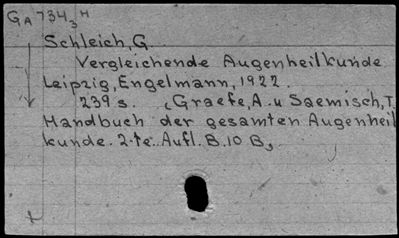 GA 734 3 H
Schleich, G.
Vergleichende Augenheilkunde
Leipzig, Engelmann, 1922.
239 s. (Graefe, A. u Saemisch, T.
Handbuch der gesamten Augenheil
kunde. 2.te. Aufl. B. 10 B,